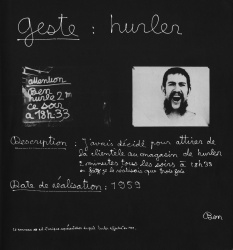 geste : hurler
attention
Ben
hurle 2 m
ce soir
a 18h33
Description : j'avais décidé pour attirer de
la clientèle au magasin de hurler
2 minutes tous les soirs à 18h33
en fait je le réalisais que trois fois
Date de réalisation : 1959
Ben